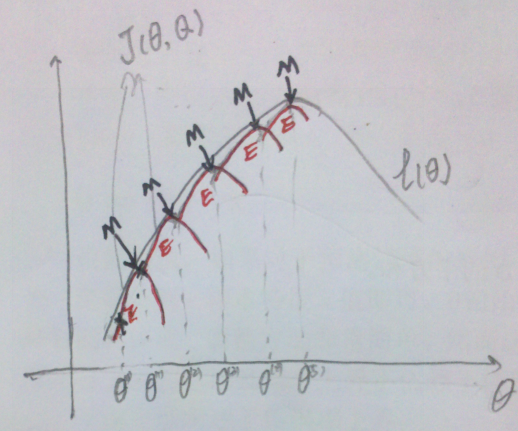 J(θ, Q)
M
M
M
M
M
E
E
E
E
E
l(θ)
θ⁽⁰⁾ θ⁽¹⁾ θ⁽²⁾ θ⁽³⁾ θ⁽⁴⁾ θ⁽⁵⁾
θ